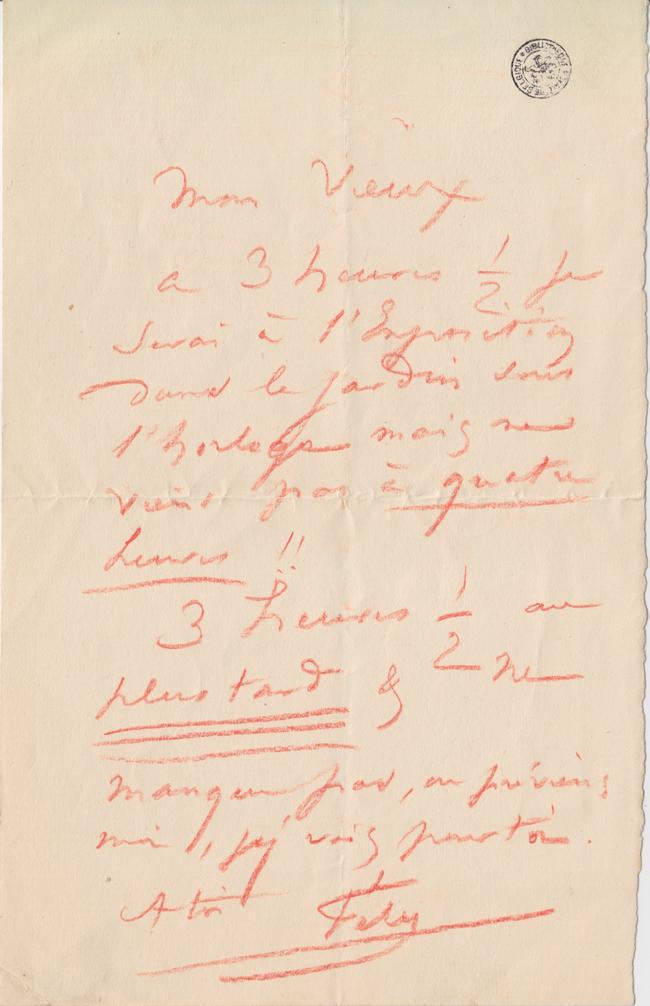 Mon Vieux
a 3 heures 1/2 je
serai à l'Exposition
dans le jardin sous
l'horloge mais ne
viens pas à quatre
heures !!
3 heures 1/2 au
plus tard & ne
manque pas, ou préviens
moi, j'y vais pour toi.
A toi Fély